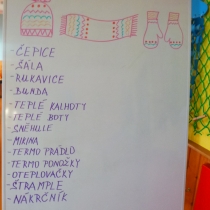 - ČEPICE
- ŠÁLA
- RUKAVICE
- BUNDA
- TEPLÉ KALHOTY
- TEPLÉ BOTY
- SNĚHULE
- MIKINA
- TERMO PRÁDLO
- TERMO PONOŽKY
- OTEPLOVAČKY
- ŠTRAMPLE
- NÁKRČNÍK